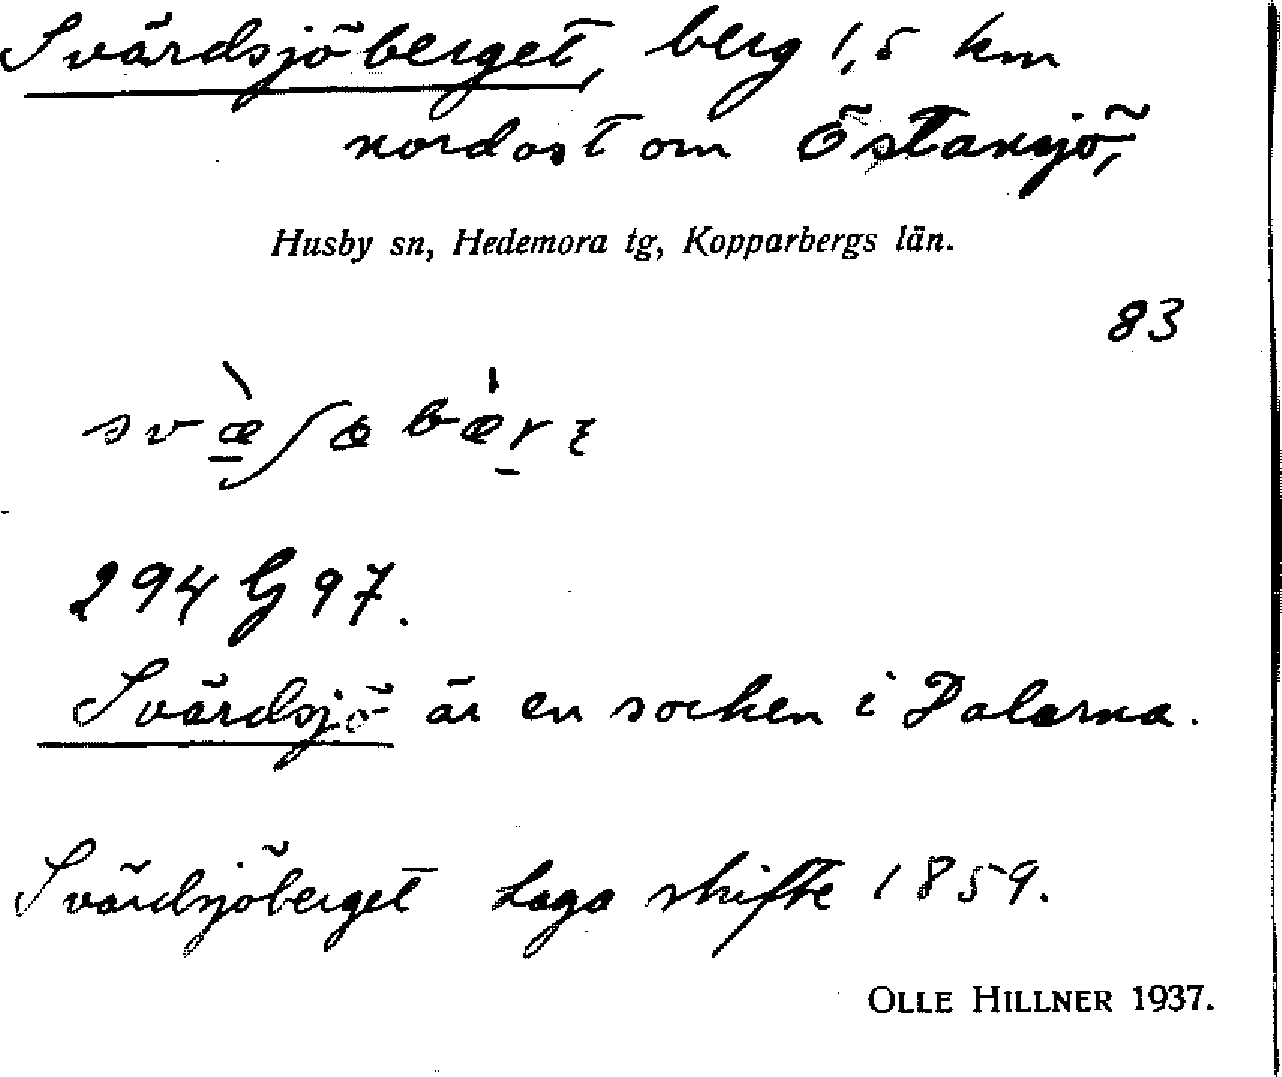 Svärdsjöberget, berg 1,5 km
nordost om Östansjö,
Husby sn, Hedemora tg, Kopparbergs län.
83
svæ̠̀ʃœbær̠̍ε
294 G 97.
Svärdsjö är en socken i Dalarna.
Svärdsjöberget Laga skifte 1859.
OLLE HILLNER 1937.